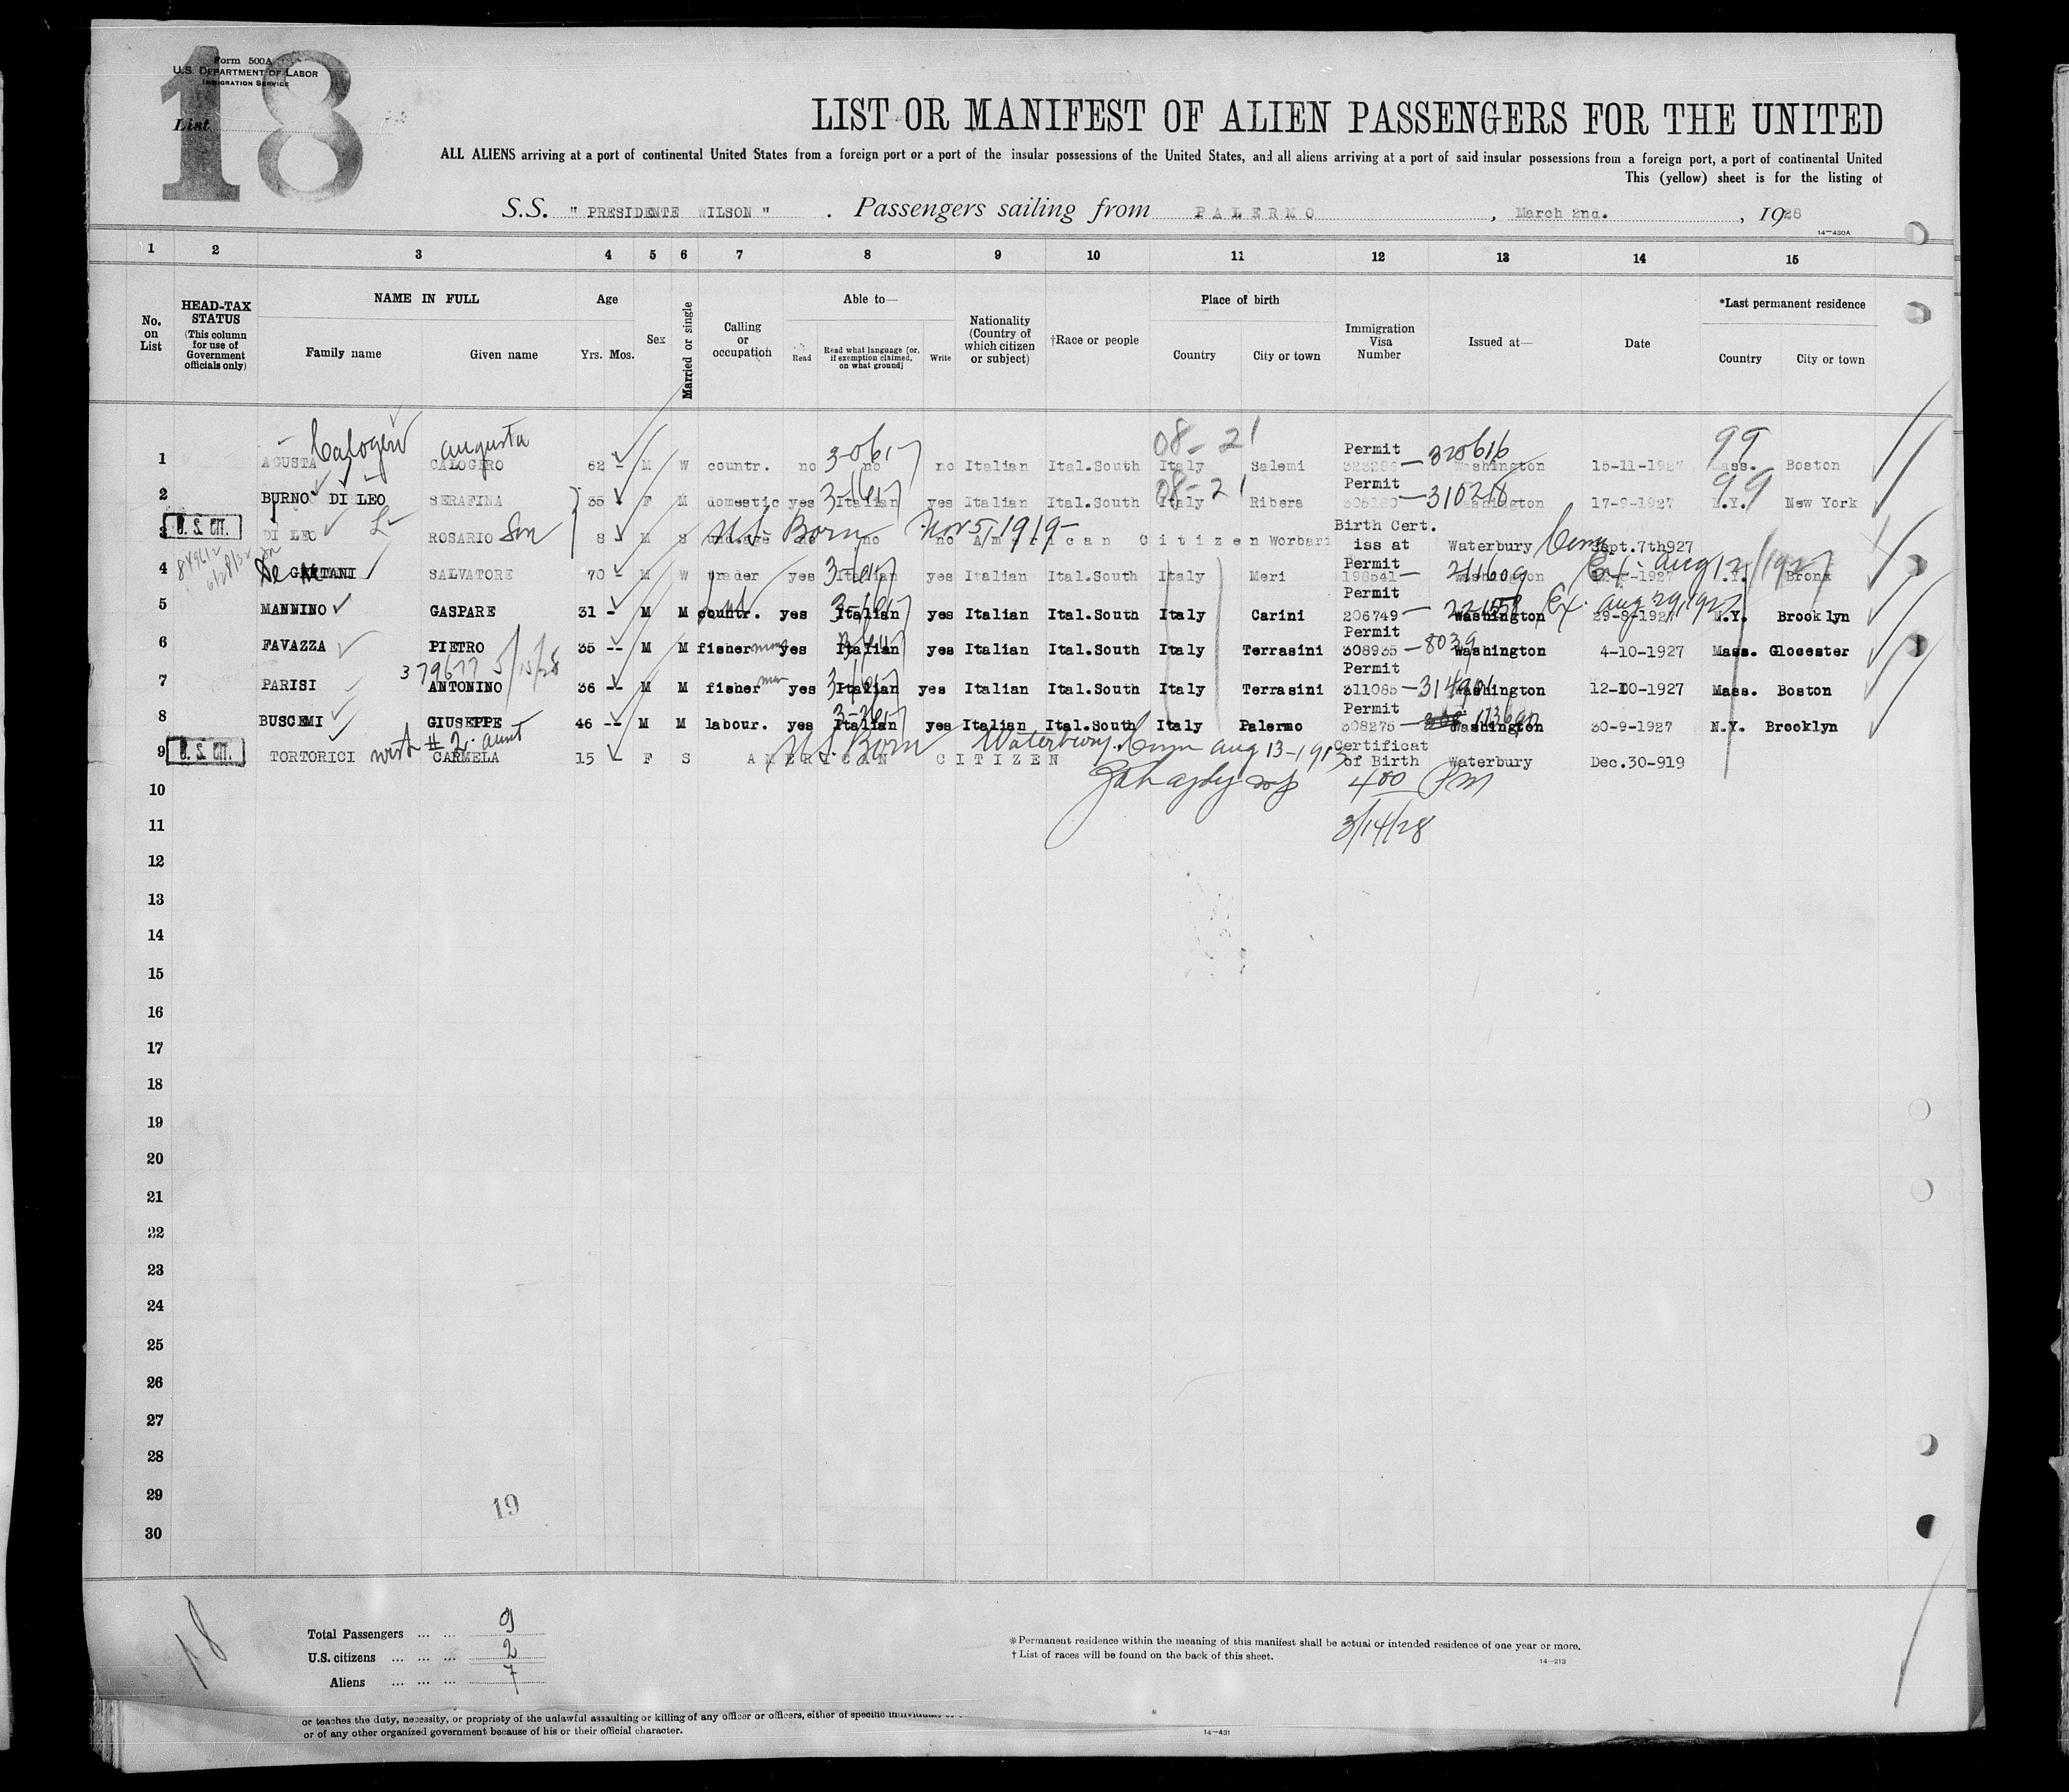 18
Form 500A
U.S. DEPARTMENT OF LABOR
IMMIGRATION SERVICE
List
LIST OR MANIFEST OF ALIEN PASSENGERS FOR THE UNITED
ALL ALIENS arriving at a port of continental United States from a foreign port or a port of the insular possessions of the United States, and all aliens arriving at a port of said insular possessions from a foreign port, a port of continental United
This (yellow) sheet is for the listing of
S.S. " PRESIDENTE WILSON " . Passengers sailing from PALERMO , March 2nd. , 1928
14-430A
1 2 3 4 5 6 7 8 9 10 11 12 13 14 15
No. on List
HEAD-TAX STATUS (This column for use of Government officials only)
NAME IN FULL
Family name Given name
Age
Yrs. Mos.
Sex
Married or single
Calling or occupation
Able to—
Read Read what language [or, if exemption claimed, on what ground] Write
Nationality (Country of which citizen or subject)
†Race or people
Place of birth
Country City or town
Immigration Visa Number
Issued at—
Date
*Last permanent residence
Country City or town
Calogero augusta 3-061- 08-21 Permit 320616 99
1 AGUSTA CALOGERO 62 - M W countr. no no no Italian Ital.South Italy Salemi Washington 15-11-1927 Mass. Boston
08-21 Permit 99
2 BURNO DI LEO SERAFINA 35 - F M domestic yes Italian yes Italian Ital.South Italy Ribera Washington 17-9-1927 N.Y. New York
U. S. CIT. Son U.S. Born Nov 5, 1919 Birth Cert.
3 DI LEO ROSARIO 8 M S no no no American Citizen Worbari iss at Waterbury Conn Sept.7th927
84961 6/28/32 Permit 211609 Ex. Aug 12/1927
4 De GAETANI SALVATORE 70 - M W trader yes Italian yes Italian Ital.South Italy Meri 198541 Washington N.Y. Bronx
Permit Ex. Aug 29, 1927
5 MANNINO GASPARE 31 - M M countr. yes Italian yes Italian Ital.South Italy Carini 206749 Washington 29-8-1927 N.Y. Brooklyn
Permit
6 FAVAZZA PIETRO 35 -- M M fisherman yes Italian yes Italian Ital.South Italy Terrasini 308935 - 8039 Washington 4-10-1927 Mass. Glocester
379677 5/15/28 Permit
7 PARISI ANTONINO 36 -- M M fisherman yes Italian yes Italian Ital.South Italy Terrasini 311085 - 314901 Washington 12-10-1927 Mass. Boston
Permit
8 BUSCEMI GIUSEPPE 46 -- M M labour. yes Italian yes Italian Ital.South Italy Palermo 308275 Washington 30-9-1927 N.Y. Brooklyn
U. S. CIT. with #2. aunt U.S. Born Waterbury, Conn Aug 13-1913 Certificat
9 TORTORICI CARMELA 15 - F S AMERICAN CITIZEN of Birth Waterbury Dec.30-919
10 4 00 PM
11 3/14/28
12
13
14
15
16
17
18
19
20
21
22
23
24
25
26
27
28
29
19
30
18
Total Passengers ... ... 9
U.S. citizens ... ... ... 2
Aliens ... ... ... 7
*Permanent residence within the meaning of this manifest shall be actual or intended residence of one year or more.
† List of races will be found on the back of this sheet.
14-213
or teaches the duty, necessity, or propriety of the unlawful assaulting or killing of any officer or officers, either of specific
or of any other organized government because of his or their official character.
14-431